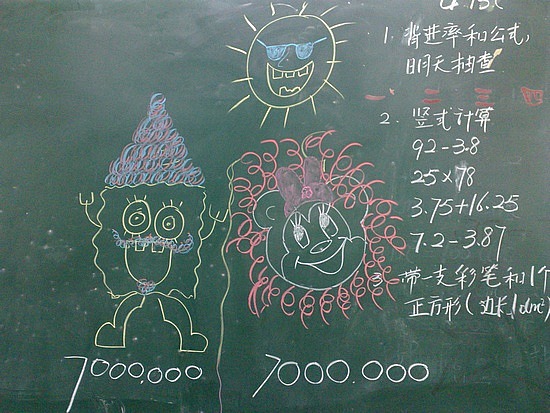 1. 背进率和公式，
明天抽查
一 二 三 四
2. 竖式计算
92-3.8
25×78
3.75+16.25
7.2-3.87
3. 带一支彩笔和1个
正方形(边长1dm²)
7000.000
7000.000